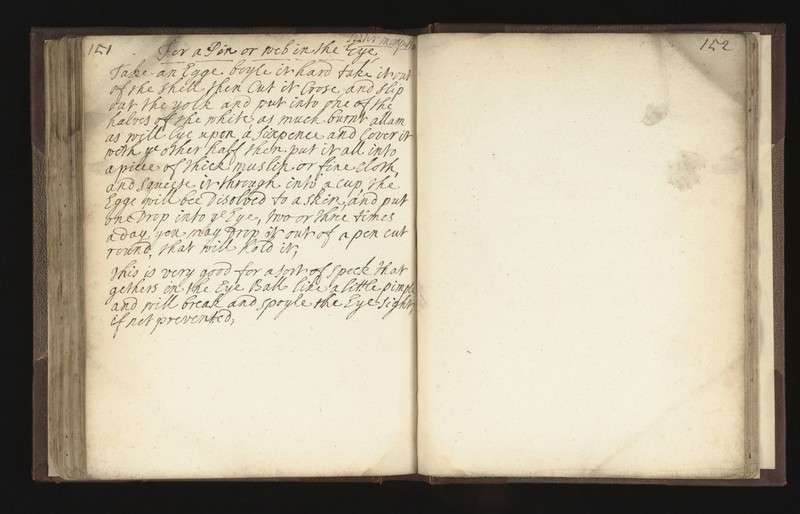 151
For a Pin or web in the Eye
Take an Egge boyle it hard take it out
of the shell then Cut it Crose, and slip
out the yolk and put into one of the
halves of the white as much burnt allam
as will lye upon a sixpence and Cover it
with ye other half then put it all into
a piece of thick muslin or fine cloth,
and squeese it through into a cup, the
Egge will bee Disolved to a skin, and put
one Drop into ye Eye, two or three times
a day, you may Drop it out of a pen cut
round, that will hold it,
this is very good for a sort of speck that
gethers on the Eye Ball like a little pimple
and will break and spoyle the Eye sight,
if not prevented,
152